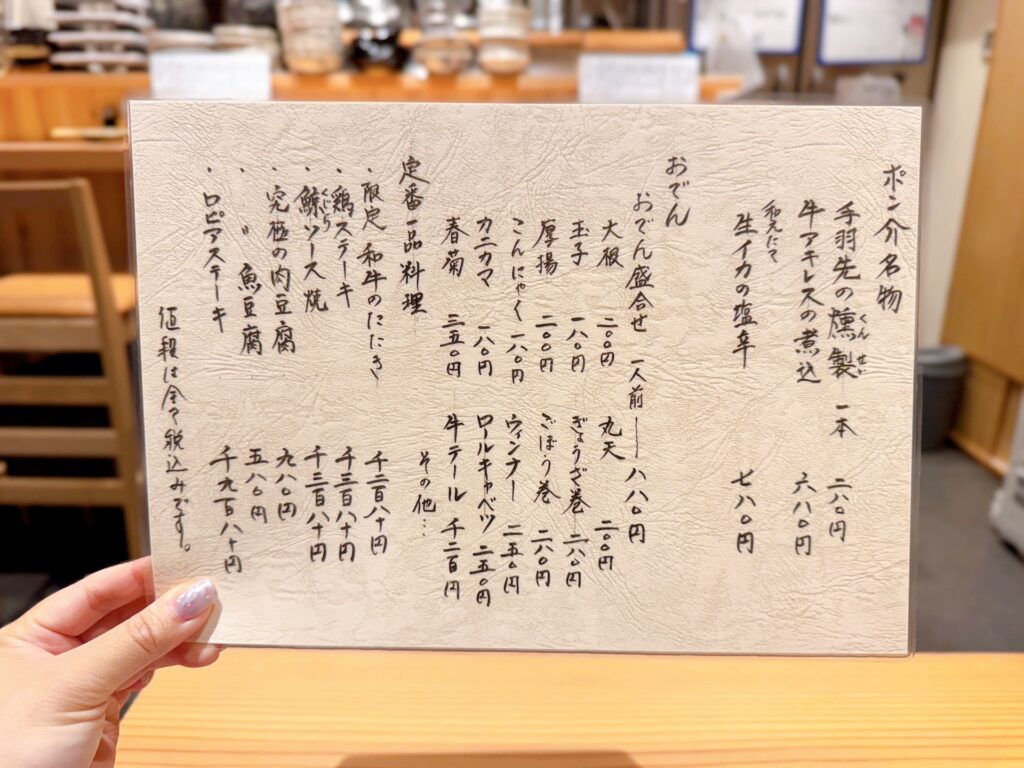 ポン介名物
手羽先の燻製 一本 二八〇円
くんせい
牛アキレスの煮込 六八〇円
和えたて
生イカの塩辛 七八〇円
おでん
おでん盛合せ 一人前 八八〇円
大根 二〇〇円 丸天 二〇〇円
玉子 一八〇円 ぎょうざ巻 二八〇円
厚揚 二〇〇円 ごぼう巻 二八〇円
こんにゃく 一八〇円 ウィンナー 二五〇円
カニカマ 一八〇円 ロールキャベツ 二五〇円
春菊 三五〇円 牛テール 千二百円
その他…
定番一品料理
・限定 和牛のにこごり 千二百八十円
・鶏ステーキ 千三百八十円
・鯨ソース焼 千三百八十円
くじら
・究極の肉豆腐 九八〇円
・〃 魚豆腐 五八〇円
・ロピアステーキ 千九百八十円
値段は全て税込みです。